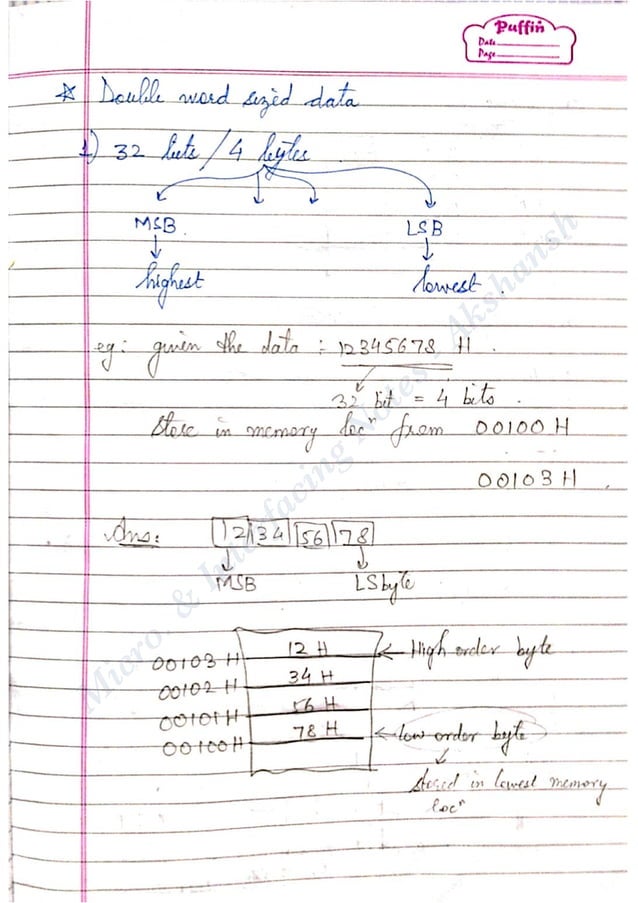 Puffin
Date
Page
☆ Double word sized data
1) 32 bits / 4 bytes
MSB. LSB
highest lowest.
eg: given the data : 12345678 H.
32 bit = 4 bits.
Store in memory locⁿ from 00100H
00103H.
Ans: 12 34 56 78
MSB LSbyte
00103 H 12 H ← High order byte
00102 H 34 H
00101 H 56 H
00100 H 78 H ← low order byte
stored in lowest memory
locⁿ
Micro. & Interfacing Notes : Akshansh